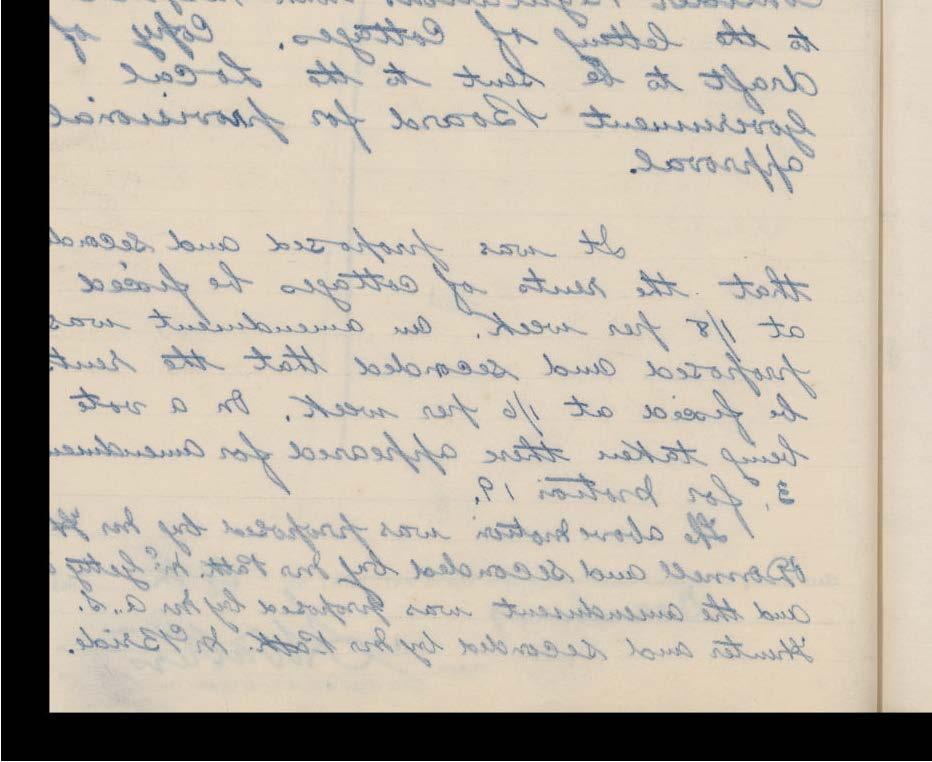 to the letting of Cottages. Copy of
draft to be sent to the Local
Government Board for provisional
approval.
It was proposed and second
that the rents of cottages be fixed
at 1/8 per week. An amendment was
proposed and seconded that the rents
be fixed at 1/6 per week. On a vote
being taken there appeared for amendmen
3, for motion 19.
The above motion was proposed by Mr
O'Donnell and seconded by Mr Patk. McGetty
and the amendment was proposed by Mr A. S.
Hunter and seconded by Mr Patk. McBride.